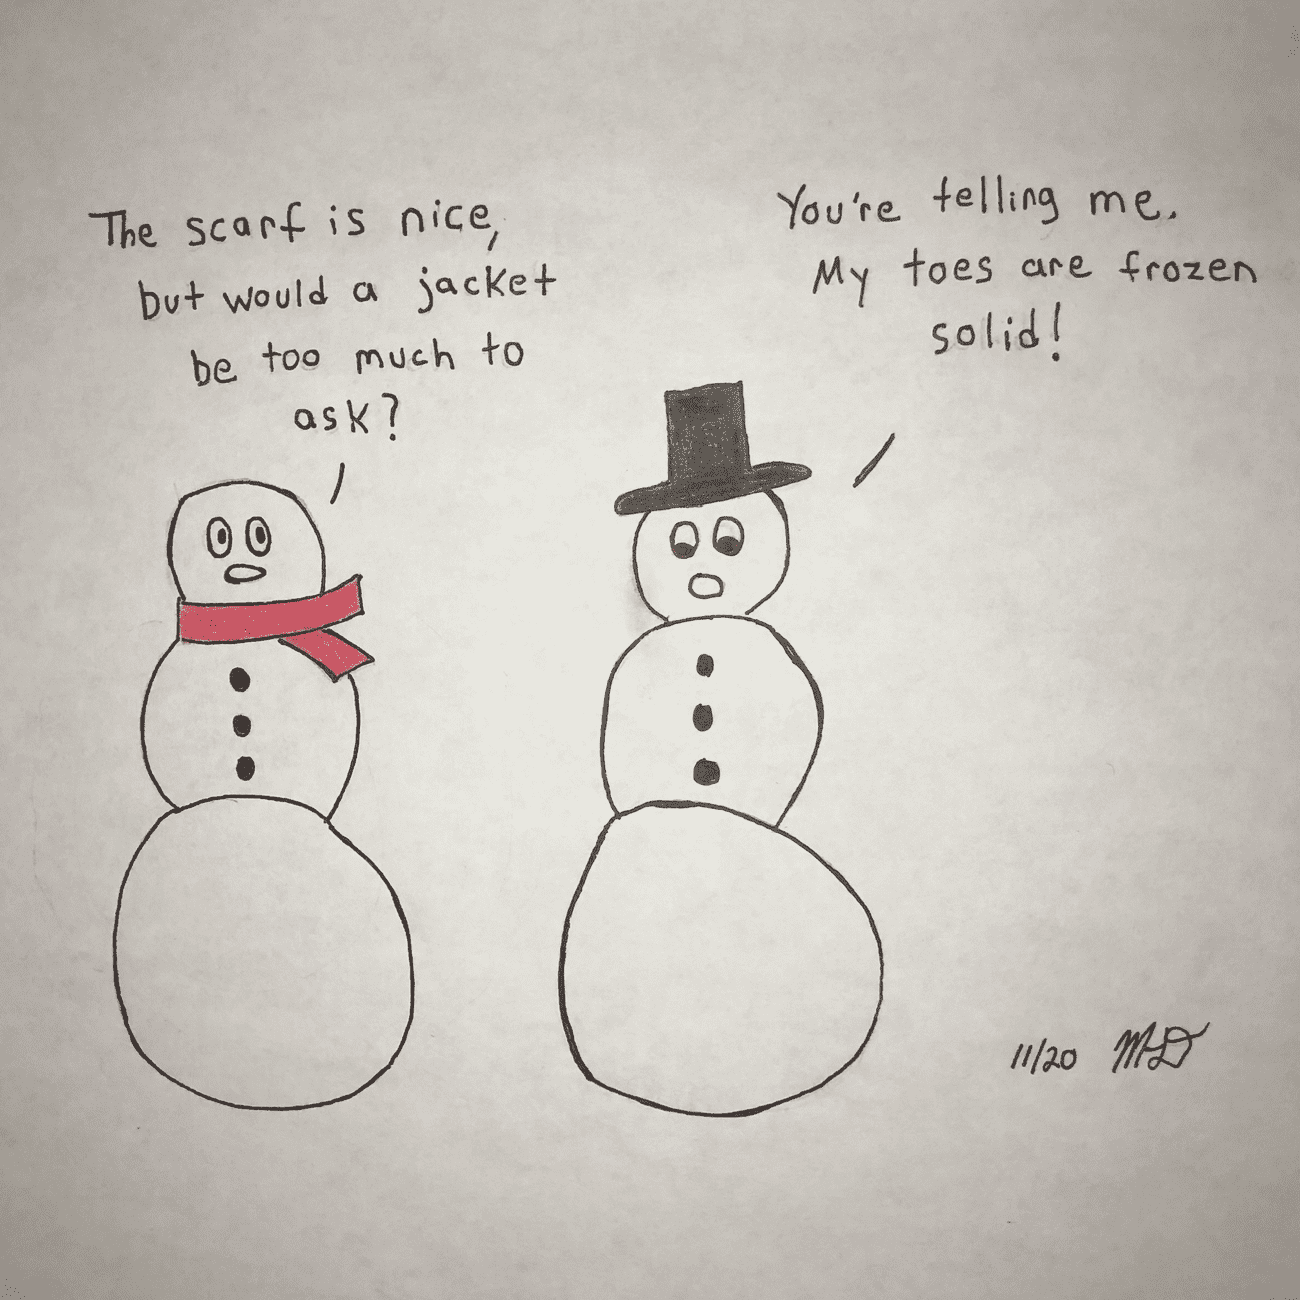 The scarf is nice,
but would a jacket
be too much to
ask?
You're telling me.
My toes are frozen
solid!
11/20 MD